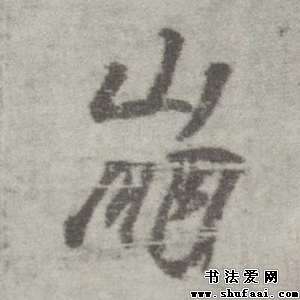 崩
书法爱网
www.shufaai.com